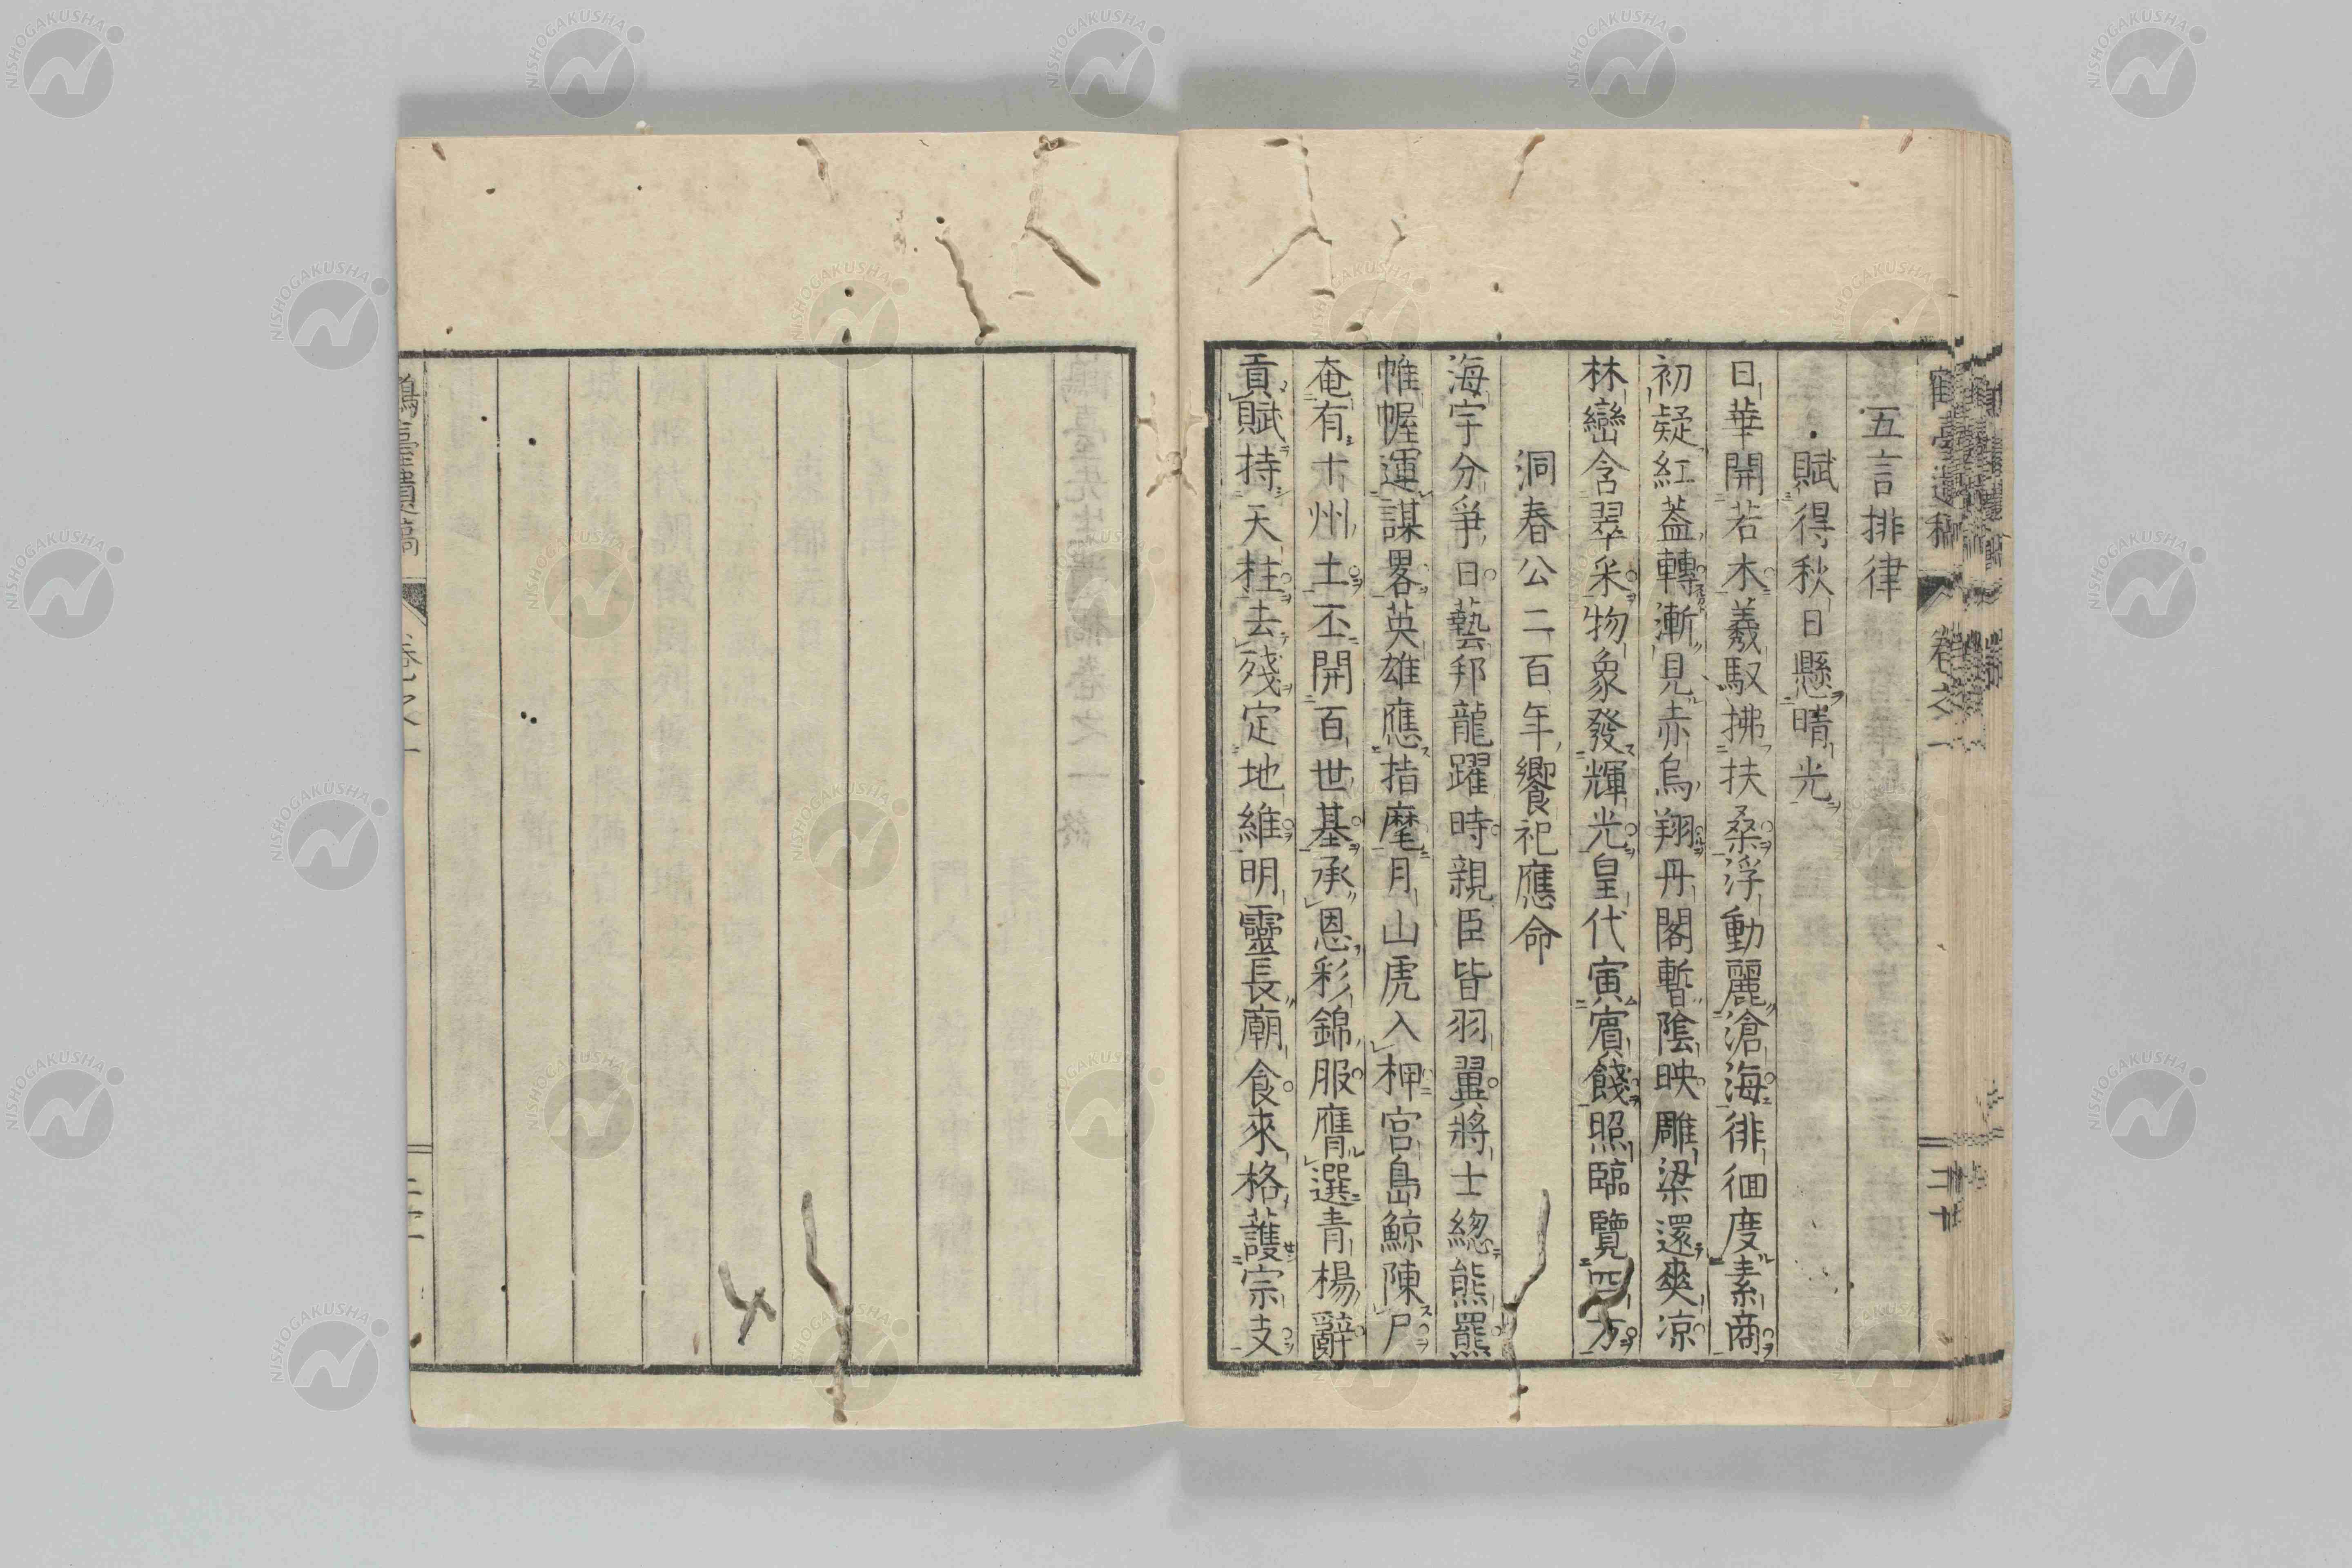 五言排律
賦得秋日懸晴光
日華開若木羲馭拂扶桑浮動麗滄海徘徊度素商
初疑紅蓋轉漸見赤烏翔丹閣暫陰映雕梁還爽涼
林巒含翠采物象發輝光皇代寅賓餞照臨覽四方
洞春公二百年饗祀應命
海宇分爭日藝邦龍躍時親臣皆羽翼將士總熊羆
帷幄運謀畧英雄應指麾月山虎入柙宮島鯨陳尸
奄有十州土丕開百世基承恩彩錦服膺選青楊辭
貢賦持天柱去殘定地維明靈長廟食來格護宗支
鶴臺遺稿 卷之一 二十
鶴臺遺稿 卷之一
鶴臺先生遺稿卷之一終
NISHOGAKUSHA